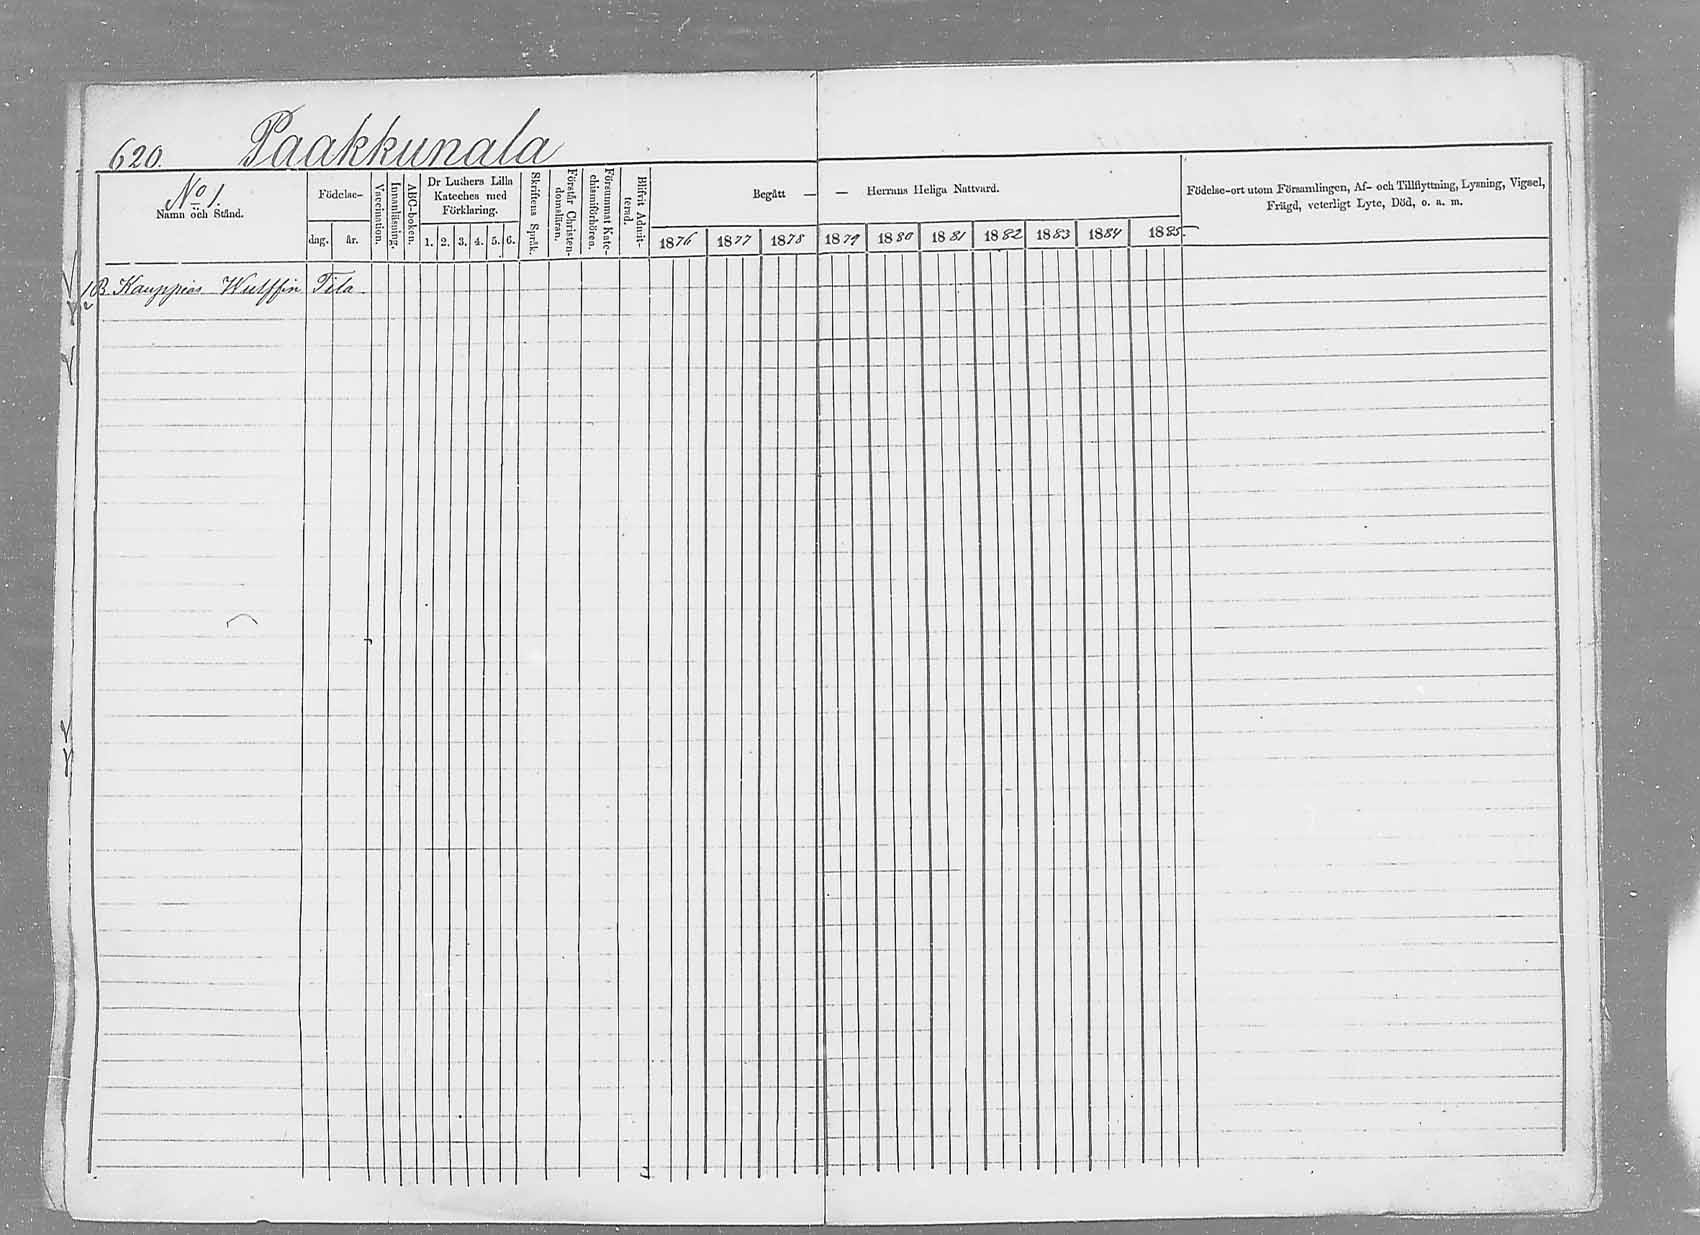 620. Paakkunala
No 1.
Namn och Stånd.
Födelse-
dag.
år.
Vaccination.
Innanläsning.
ABC-boken.
Dr Luthers Lilla
Kateches med
Förklaring.
1. 2. 3. 4. 5. 6.
Skriftens Språk.
Förstår Christen-
domsläran.
Försummat Kate-
chismiförhören.
Blifvit Admit-
terad.
Begått — — Herrans Heliga Nattvard.
1876 1877 1878 1879 1880 1881 1882 1883 1884 1885
Födelse-ort utom Församlingen, Af- och Tillflyttning, Lysning, Vigsel,
Frägd, veterligt Lyte, Död, o. a. m.
1/2 B Kauppias Wulffin Tila